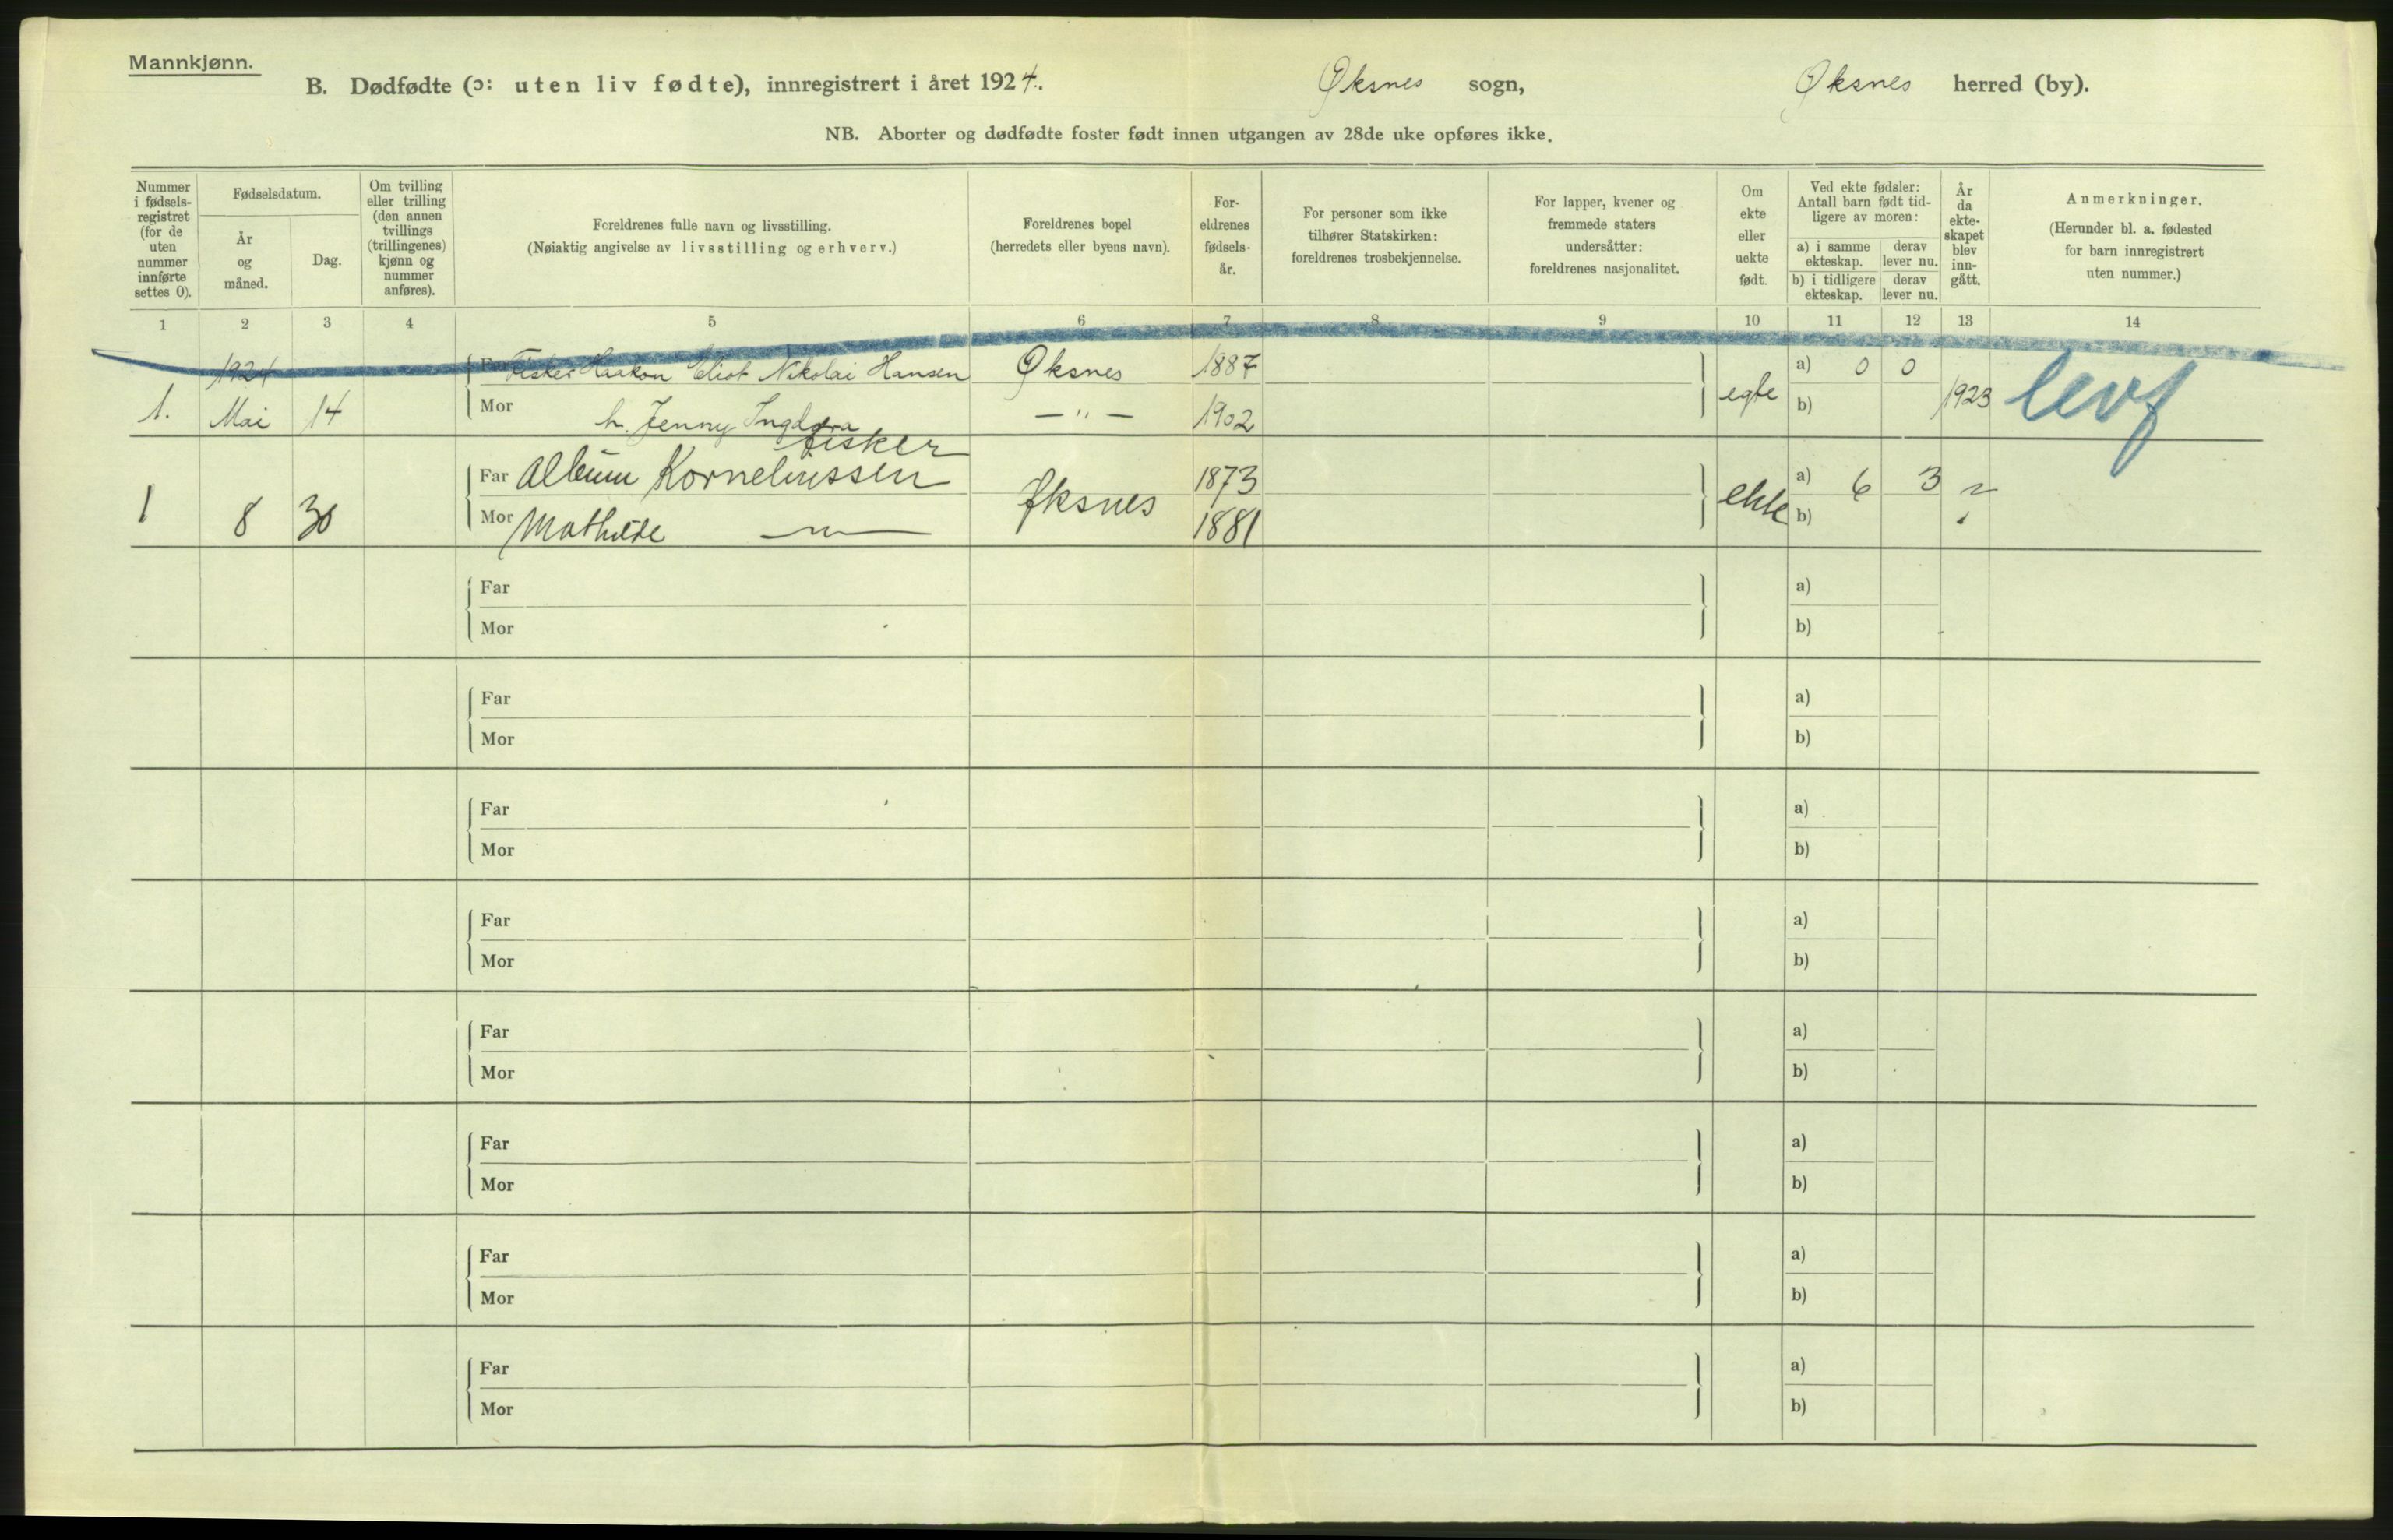 Mannkjønn.
B. Dødfødte (ɔ: uten liv fødte), innregistrert i året 1924. Øksnes sogn, Øksnes herred (by).
NB. Aborter og dødfødte foster født innen utgangen av 28de uke opføres ikke.
Nummer i fødsels-registret (for de uten nummer innførte settes 0).
Fødselsdatum.
År og måned.
Dag.
Om tvilling eller trilling (den annen tvillings (trillingenes) kjønn og nummer anføres).
Foreldrenes fulle navn og livsstilling.
(Nøiaktig angivelse av livsstilling og erhverv.)
Foreldrenes bopel
(herredets eller byens navn).
For-eldrenes fødsels-år.
For personer som ikke tilhører Statskirken: foreldrenes trosbekjennelse.
For lapper, kvener og fremmede staters undersåtter: foreldrenes nasjonalitet.
Om ekte eller uekte født.
Ved ekte fødsler: Antall barn født tid-ligere av moren:
a) i samme ekteskap.
derav lever nu.
b) i tidligere ekteskap.
derav lever nu.
År da ekte-skapet blev inn-gått.
Anmerkninger.
(Herunder bl. a. fødested for barn innregistrert uten nummer.)
1 2 3 4 5 6 7 8 9 10 11 12 13 14
1924 Far Fisker Haakon Eliot Nikolai Hansen Øksnes 1887 a) 0 0
1. Mai 14 Mor h. Jenny Ingdora —"— 1902 egte b) 1923 levf
fisker
Far Album Korneliussen 1873 a) 6 3 ?
1 8 30 Mor Mathilde —"— Øksnes 1881 ekte b)
Far a)
Mor b)
Far a)
Mor b)
Far a)
Mor b)
Far a)
Mor b)
Far a)
Mor b)
Far a)
Mor b)
Far a)
Mor b)
Far a)
Mor b)